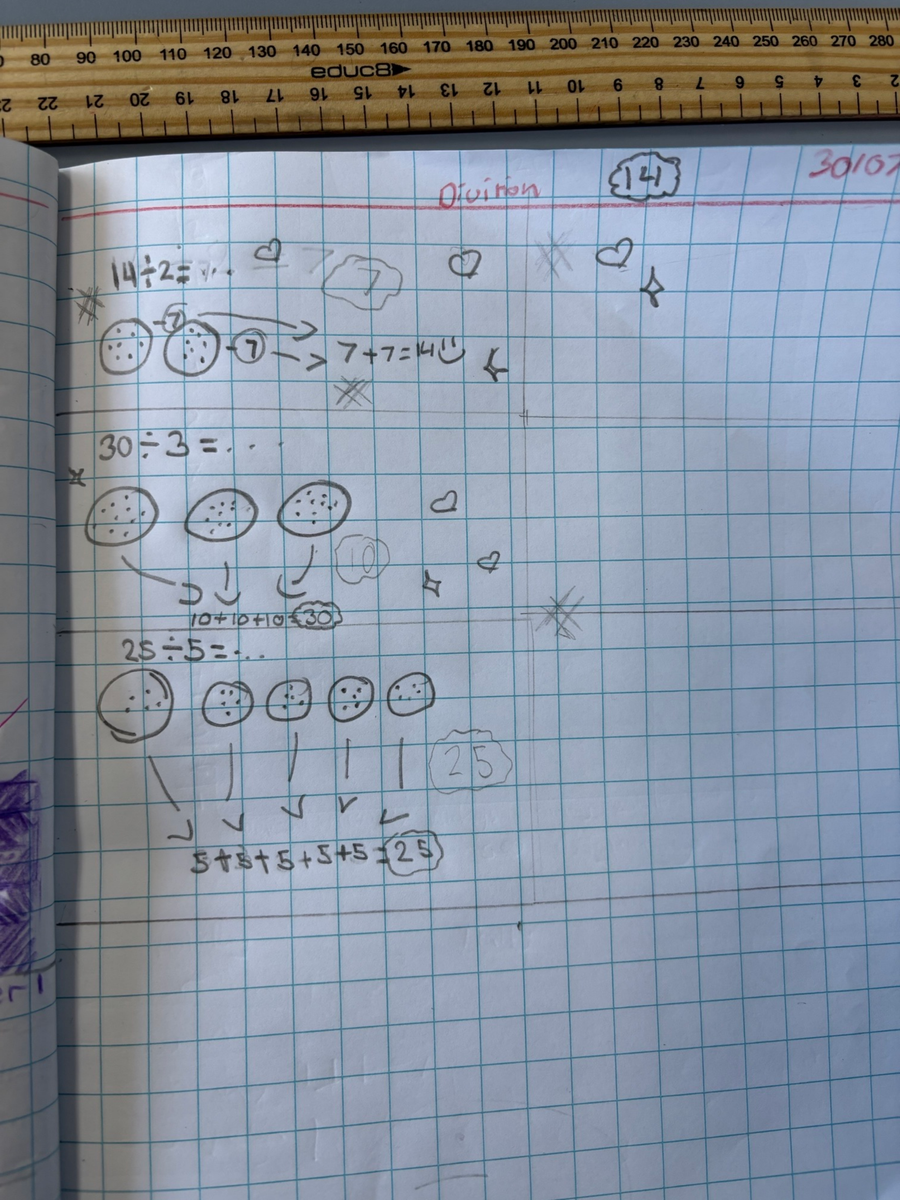 80 90 100 110 120 130 140 150 160 170 180 190 200 210 220 230 240 250 260 270 280
educ8
22 21 20 19 18 17 16 15 14 13 12 11 10 9 8 7 6 5 4 3 2
Division 14 30107
14÷2=... = 7 7
7
7 7+7=14
30÷3=...
10
10+10+10=30
25÷5=...
25
5+5+5+5+5=25
er 1